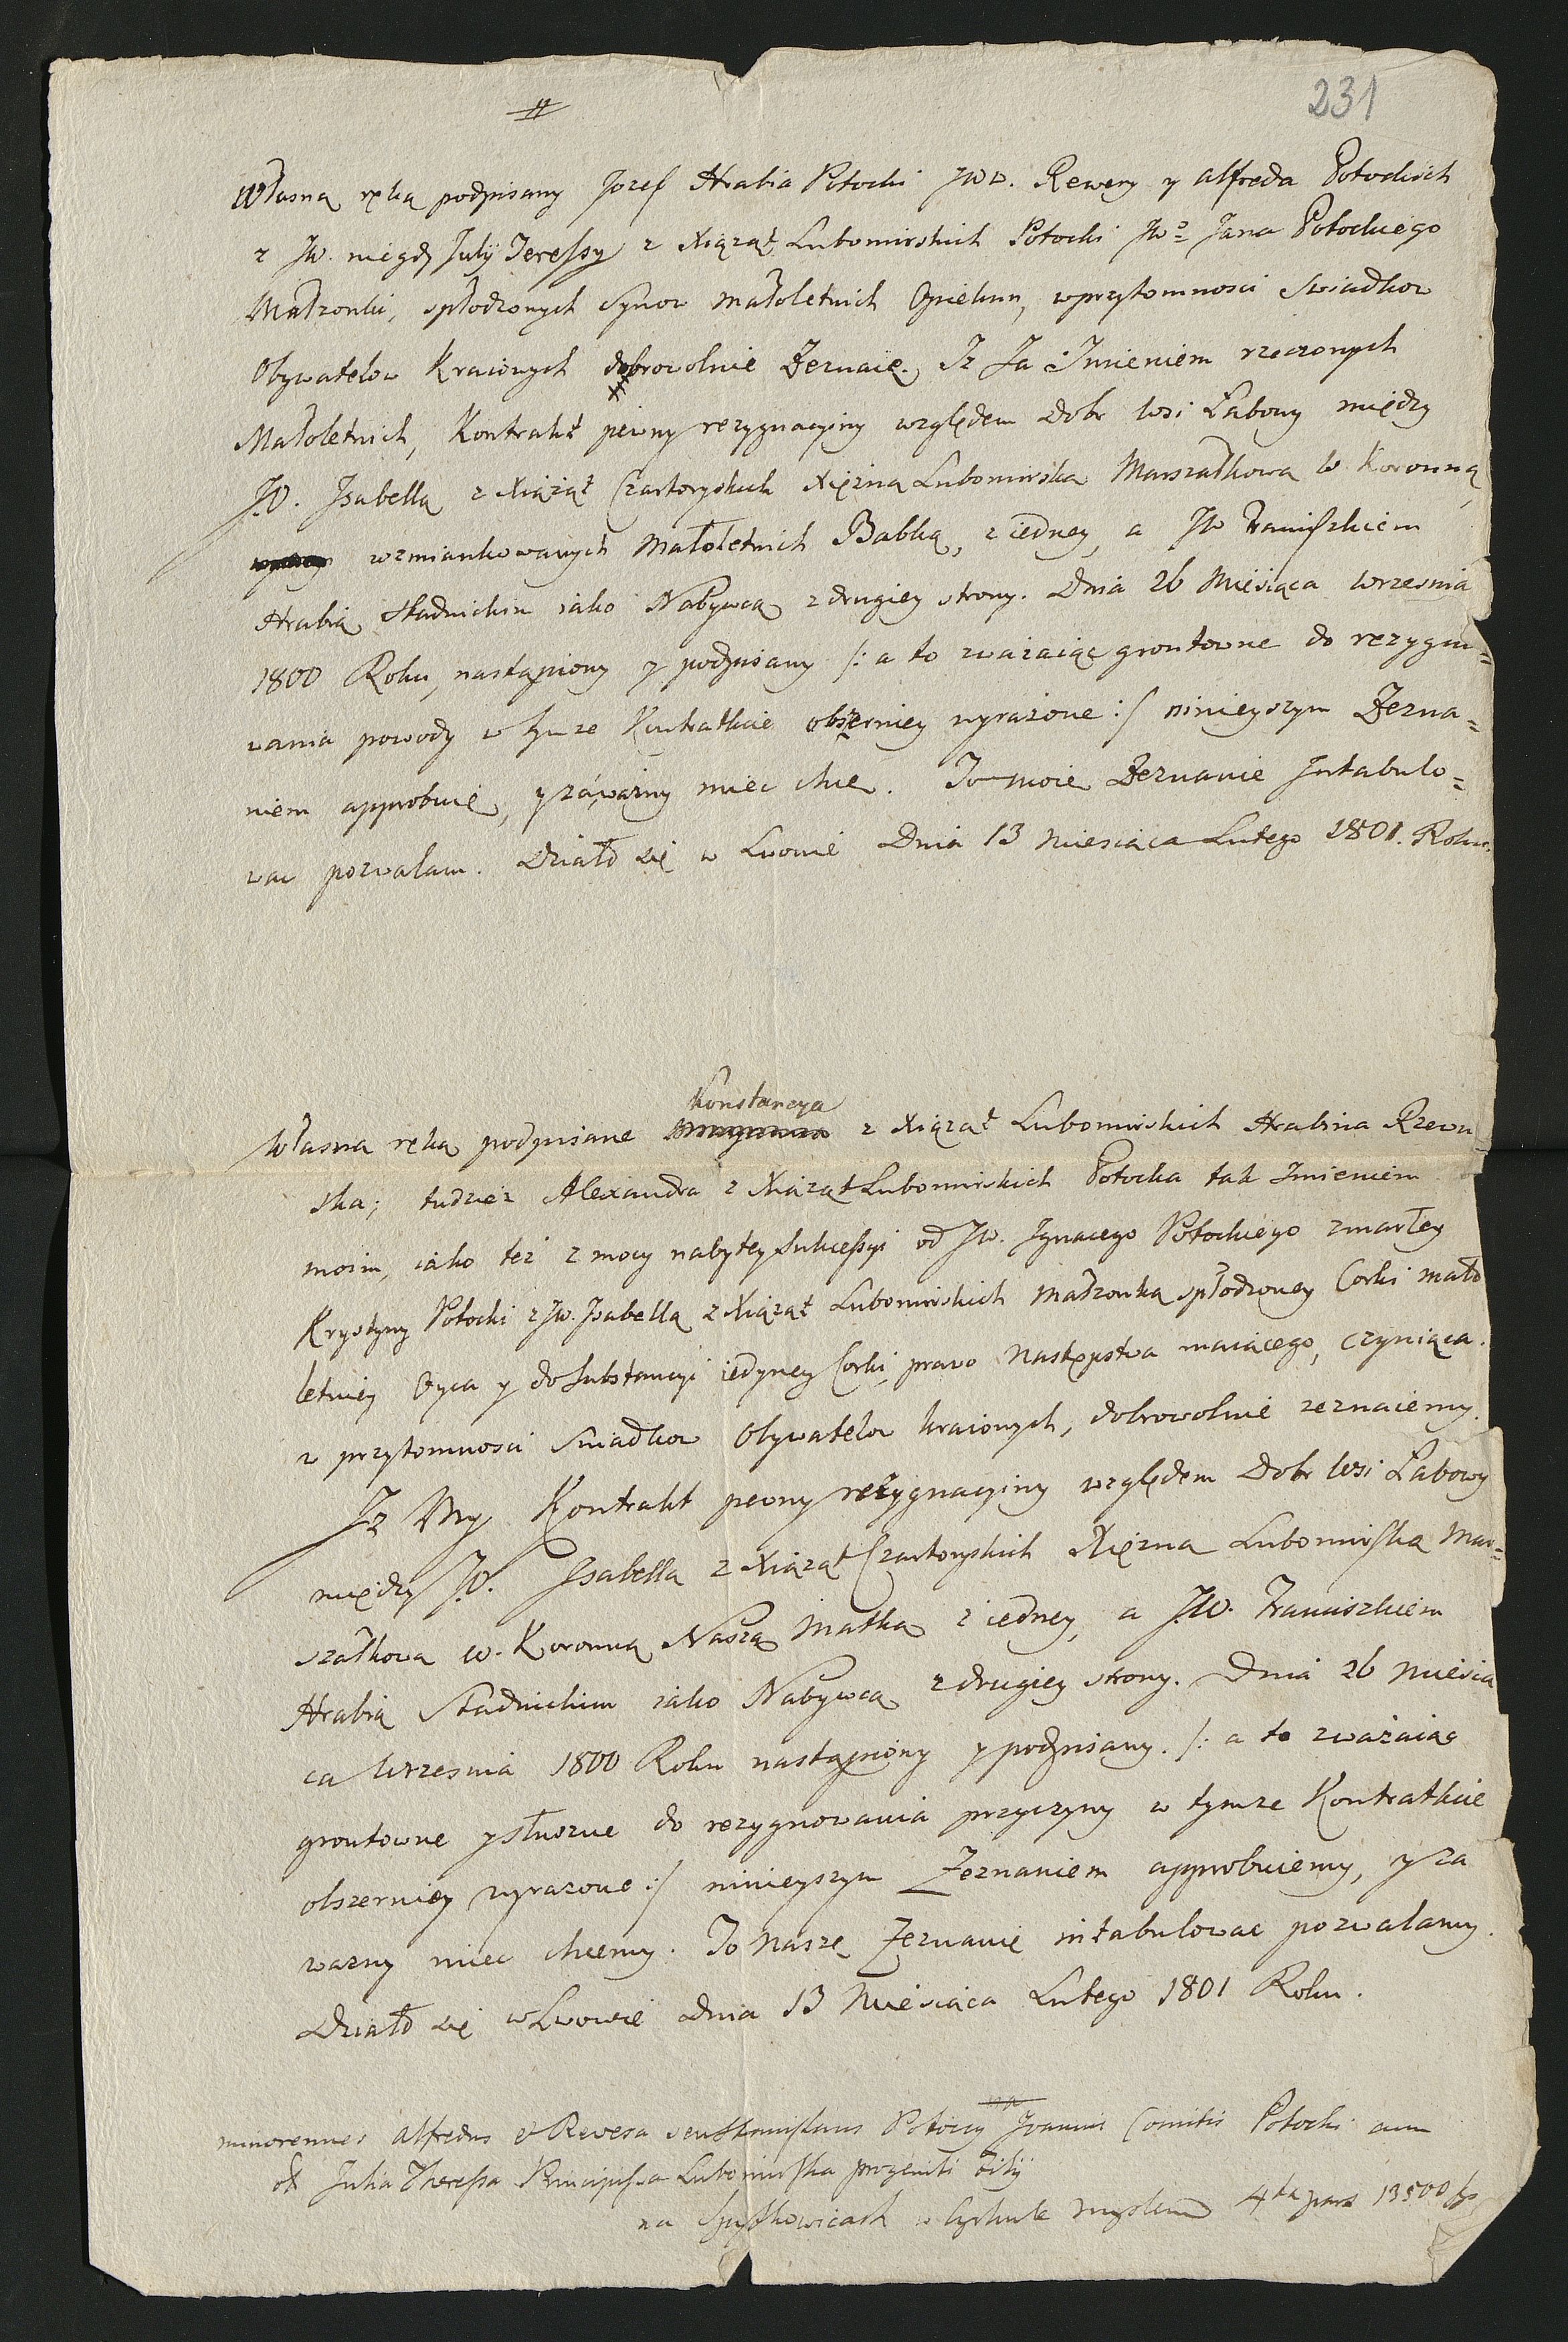 231
Własną ręką podpisany Jozef Hrabia Potocki JWW. Rewery y Alfreda Potockich
z JW. niegdy Julij Teressy z Xiążąt Lubomirskich Potocki JWo Jana Potockiego
Małzonki, spłodzonych Synow małoletnich Opiekun, w przytomnosci Swiadkow
Obywatelow Kraiowych dobrowolnie Zeznaię. Iz Ja Imieniem rzeczonych
Małoletnich, Kontrakt pewny rezygnacyiny względem Dobr Wsi Łabowy między
J.O. Isabellą z Xiążąt Czartoryskich Xiężną Lubomirską Marszałkową W. Koronną
wzmiankowanych Małoletnich Babką, z iedney, a JW Franciszkiem
Hrabią Stadnickim iako Nabywcą z drugiey strony. Dnia 26 Miesiąca Wrzesnia
1800 Roku, nastąpiony y podpisany /: a to zważaiąc grontowne do rezygno=
wania powody w tymze Kontrakcie obszerniey wyrażone :/ ninieyszym Zezna=
niem approbuię, y za ważny miec chcę. To moie Zeznanie Intabulo=
wac pozwalam. Działo się w Lwowie Dnia 13 Miesiąca Lutego 1801. Roku.
Konstancya
Własną ręką podpisane z Xiążąt Lubomirskich Hrabina Rzewu
ska; tudzież Alexandra z Xiążąt Lubomirskich Potocka tak Imieniem
moim, iako też z mocy nabytey Sukcessyi od JW. Ignacego Potockiego zmarłey
Krystyny Potocki z JW. Isabellą z Xiążąt Lubomirskich Małzonką spłodzoney Corki mało
letniey Oyca y do Substancyi iedyney Corki, prawo Następstwa maiącego, czyniąca.
w przytomnosci Swiadkow Obywatelow kraiowych, dobrowolnie zeznaiemy.
Iz My Kontrakt pewny rezygnacyiny względem Dobr Wsi Łabowy
między J.O. Isabellą z Xiążąt Czartoryskich Xiężną Lubomirską Mar=
szałkową W. Koronną Naszą Matką z iedney, a J.W. Franciszkiem
Hrabią Stadnickim iako Nabywcą z drugiey strony. Dnia 26 Miesią
ca Wrzesnia 1800 Roku nastąpiony y podpisany. /: a to zważaiąc
grontowne y słuszne do rezygnowania przyczyny w tymze Kontrakcie
obszerniey wyrazone :/ ninieyszym Zeznaniem approbuiemy, y za
wazny miec chcemy. To Nasze Zeznanie intabulowac pozwalamy.
Działo się w Lwowie Dnia 13 Miesiąca Lutego 1801 Roku.
minorennes Alfredus et Rewera seu Stanislaus Potoccy Joannis Comitis Potocki cum
olim Julia Theressa Principissa Lubomirska progeniti filij
na Spytkowicach w Cyrkule Myslenic 4ta pars 13500 fr